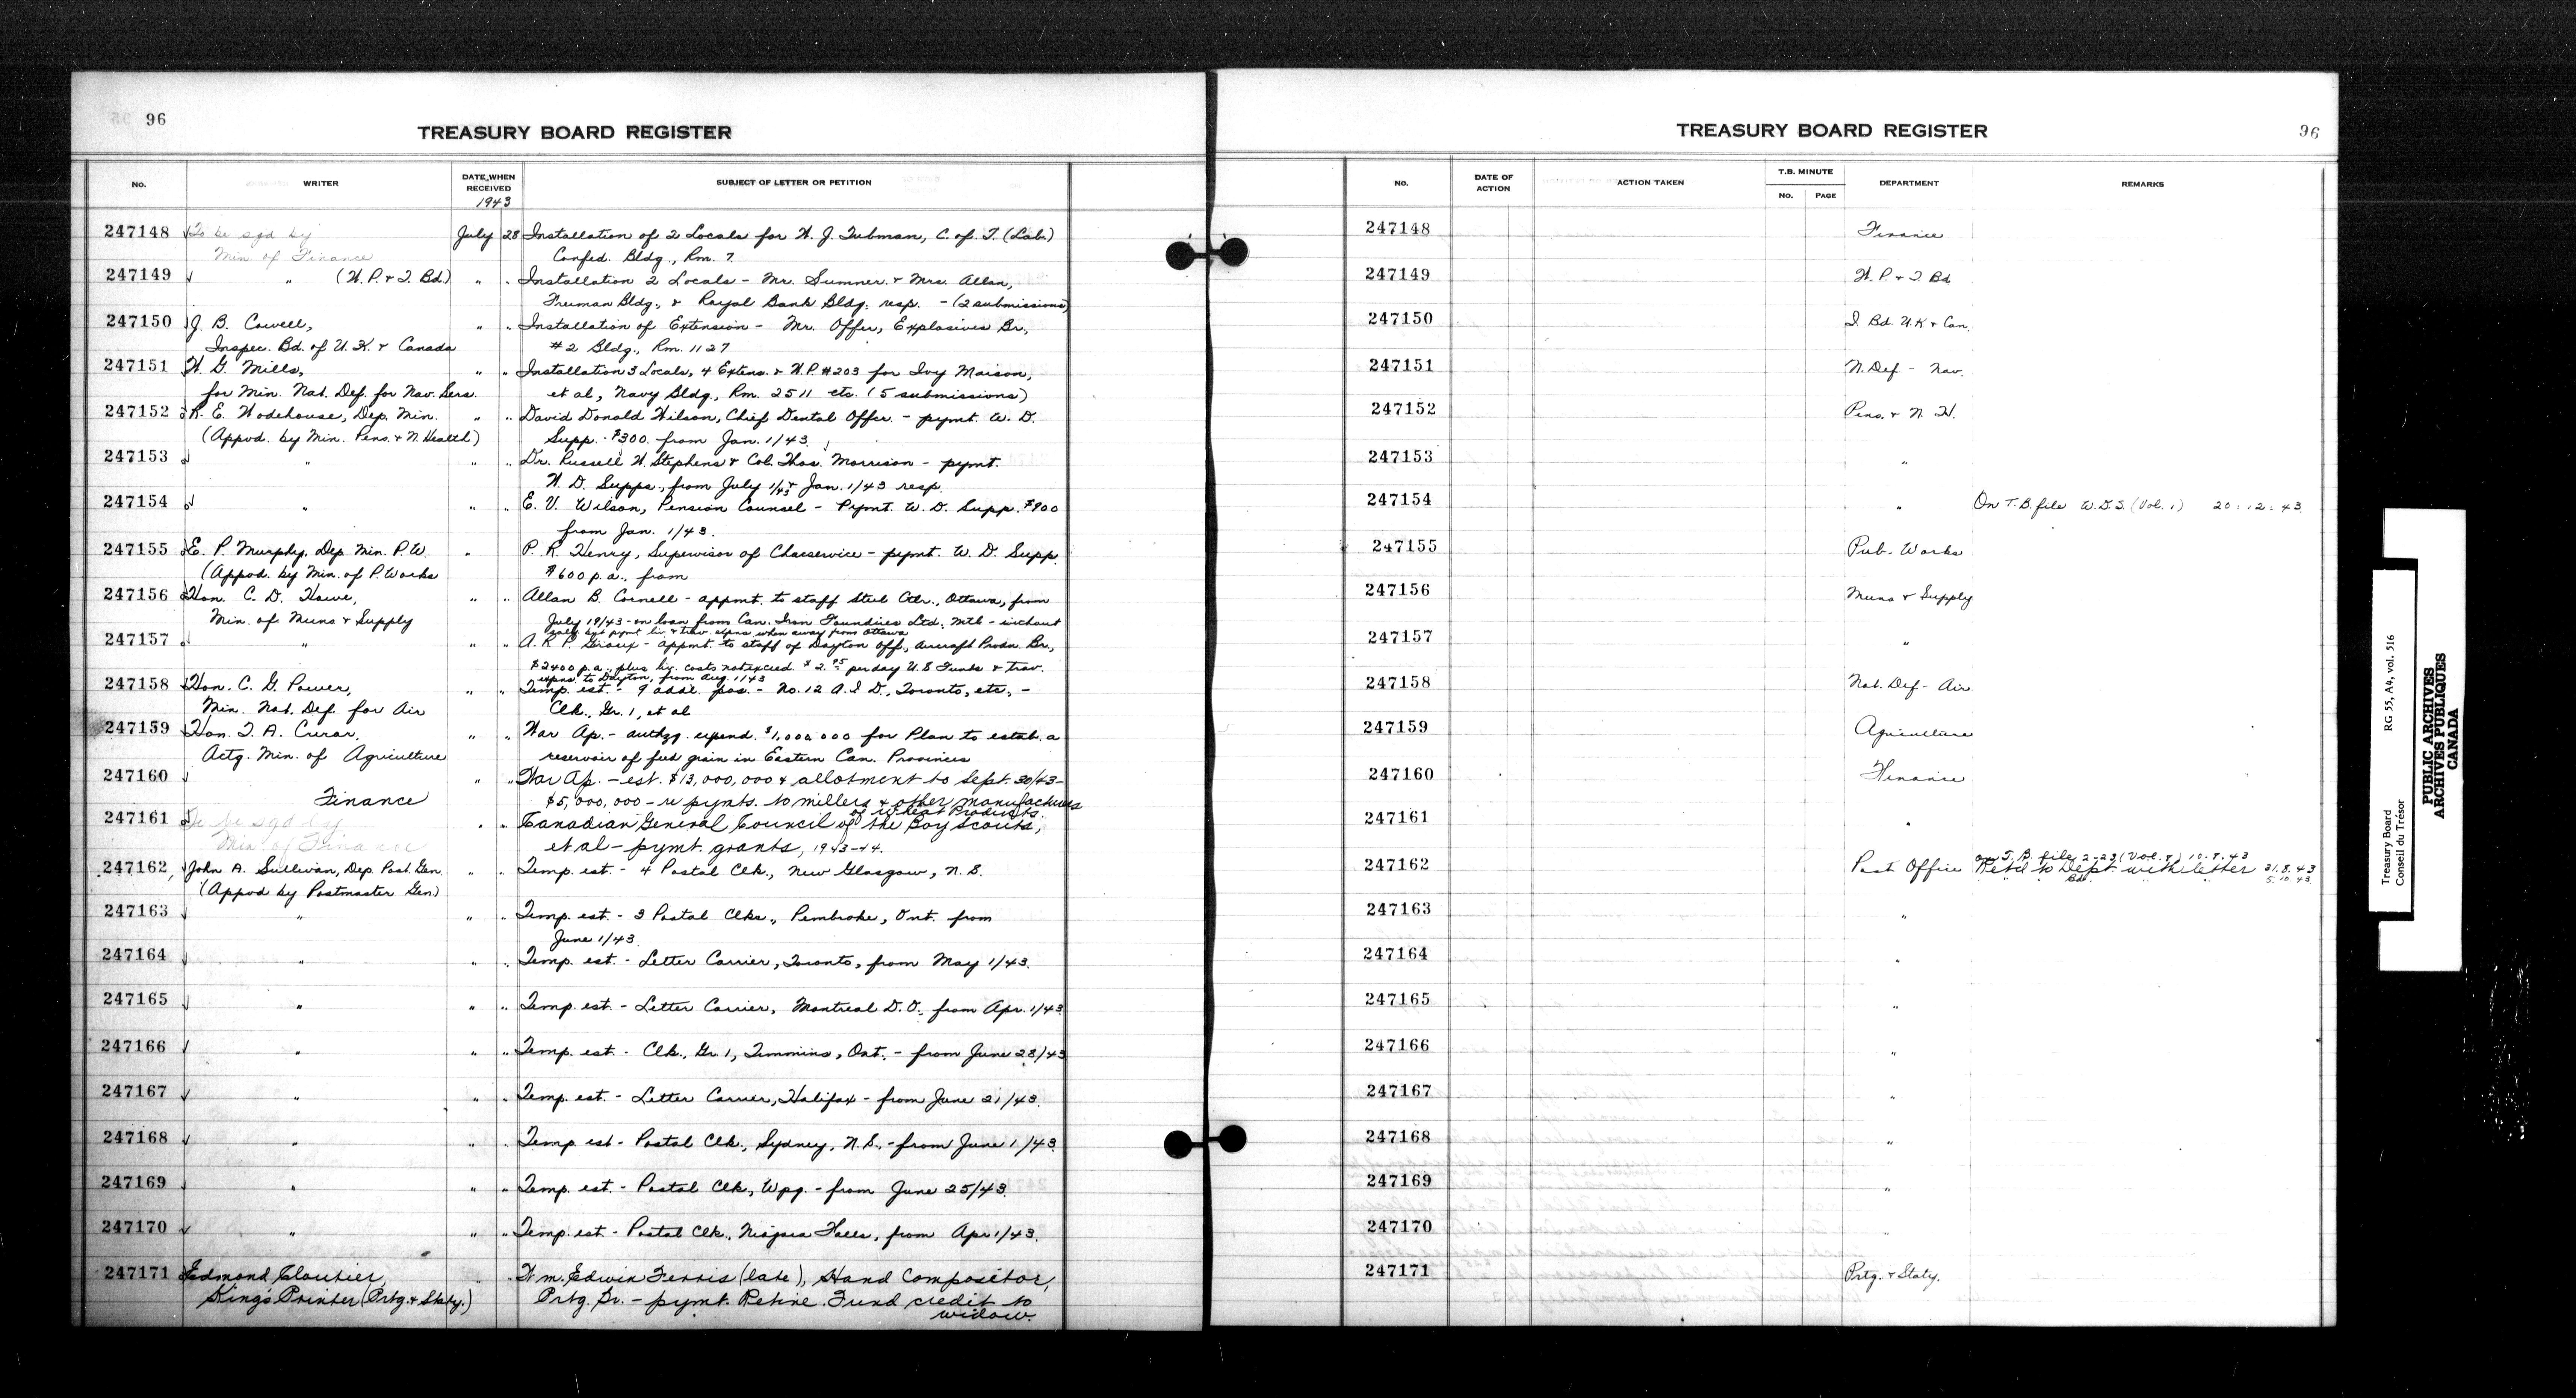 96
TREASURY BOARD REGISTER
No. WRITER DATE WHEN RECEIVED 1943 SUBJECT OF LETTER OR PETITION
247148 To be sgd by July 28 Installation of 2 Locals for W. J. Tubman, C. of T. (Lab.)
Min. of Finance Confed. Bldg., Rm. 7.
247149 " (W. P. & T. Bd.) " " Installation 2 Locals - Mr. Sumner & Mrs. Allan,
Truman Bldg., & Royal Bank Bldg. resp. - (2 submissions)
247150 J. B. Cowell, " " Installation of Extension - Mr. Offer, Explosives Br.,
Inspec. Bd. of U. K. & Canada #2 Bldg., Rm. 1127
247151 W. G. Mills, " " Installation 3 Locals, 4 Extens. & W.P. #203 for Ivy Maison,
for Min. Nat. Def. for Nav. Sers. et al, Navy Bldg., Rm. 2511 etc. (5 submissions)
247152 R. E. Wodehouse, Dep. Min. " " David Donald Wilson, Chief Dental Offer. - pymt. W. D.
(Appvd. by Min. Pens. & N. Health) Supp. - $300. from Jan. 1/43.
247153 " " " Dr. Russell W. Stephens & Col. Thos. Morrison - pymt.
W. D. Supps., from July 1/43 & Jan. 1/43 resp.
247154 " " " E. V. Wilson, Pension Counsel - Pymt. W. D. Supp. $900
from Jan. 1/43.
247155 E. P. Murphy, Dep. Min. P.W. " P. R. Henry, Supervisor of Charservice - pymt. W. D. Supp.
(Appvd. by Min. of P. Works $600 p.a., from
247156 Hon. C. D. Howe, " " Allan B. Cornell - appmt. to staff Steel Ctr., Ottawa, from
Min. of Muns & Supply July 19/43 - on loan from Can. Iron Foundries Ltd., Mtl - without
saly. but pymt liv. & trav. expns when away from Ottawa
247157 " " " A. R. P. Giroux - appmt. to staff of Dayton Off., Aircraft Prodn. Br.,
$2400 p.a., plus liv. costs not exceed. $2.95 per day U.S Funds & trav.
expns. to Dayton, from Aug. 1/43
247158 Hon. C. G. Power, " " Temp. est. - 9 addl. pos. - No. 12 A.I.D., Toronto, etc. -
Min. Nat. Def. for Air Clk., Gr. 1, et al
247159 Hon. T. A. Crerar, " " War Ap. - authzg. expend. $1,000,000 for Plan to estab. a
Actg. Min. of Agriculture reservoir of feed grain in Eastern Can. Provinces
247160 " " War Ap. - est. $13,000,000 & allotment to Sept. 30/43 -
Finance $5,000,000 - re pymts. to millers & other manufacturers
of Wheat Products.
247161 To be sgd by " " Canadian General Council of the Boy Scouts,
Min. of Finance et al - pymt. grants, 1943-44.
247162 John A. Sullivan, Dep. Post. Gen. " " Temp. est. - 4 Postal Clk., New Glasgow, N.S.
(Appvd by Postmaster Gen)
247163 " " " Temp. est. - 3 Postal Clks., Pembroke, Ont. from
June 1/43.
247164 " " " Temp. est. - Letter Carrier, Toronto, from May 1/43.
247165 " " " Temp. est. - Letter Carrier, Montreal D.O. from Apr. 1/43
247166 " " " Temp. est. - Clk., Gr. 1, Timmins, Ont. - from June 28/43
247167 " " " Temp. est. - Letter Carrier, Halifax - from June 21/43.
247168 " " " Temp est - Postal Clk., Sydney, N.S. - from June 1/43.
247169 " " " Temp. est. - Postal Clk, Wpg. - from June 25/43.
247170 " " " Temp. est. - Postal Clk., Niagara Falls, from Apr 1/43.
247171 Edmond Cloutier, " " Wm. Edwin Ferris (late), Hand Compositor,
King's Printer (Prtg. & Staty.) Prtg. Br. - pymt. Retire. Fund credit to
widow.
TREASURY BOARD REGISTER
96
No. DATE OF ACTION ACTION TAKEN T.B. MINUTE No. PAGE DEPARTMENT REMARKS
247148 Finance
247149 W. P. & T. Bd
247150 I. Bd. U.K & Can.
247151 N. Def - Nav.
247152 Pens. & N. H.
247153 "
247154 " On T.B. file W.D.S. (Vol. 1) 20:12:43
247155 Pub. Works
247156 Muns & Supply
247157 "
247158 Nat. Def - Air
247159 Agriculture
247160 Finance
247161 "
247162 Post Office on T. B. file 2-23 (Vol. 8) 10.8.43
Retd to Dept. with letter 31.8.43
5.10.43.
247163 "
247164 "
247165 "
247166 "
247167 "
247168 "
247169 "
247170 "
247171 Prtg. & Staty.
Treasury Board RG 55, A4, vol. 516
Conseil du Trésor
PUBLIC ARCHIVES
ARCHIVES PUBLIQUES
CANADA